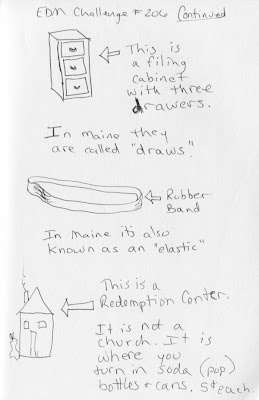 EDM Challenge #206 Continued
This is
a filing
cabinet
with three
drawers.
In maine they
are called "draws".
Rubber
Band
In Maine it's also
known as an "elastic"
This is a
Redemption Center.
It is not a
church. It is
where you
turn in soda (pop)
bottles + cans. 5¢ each.